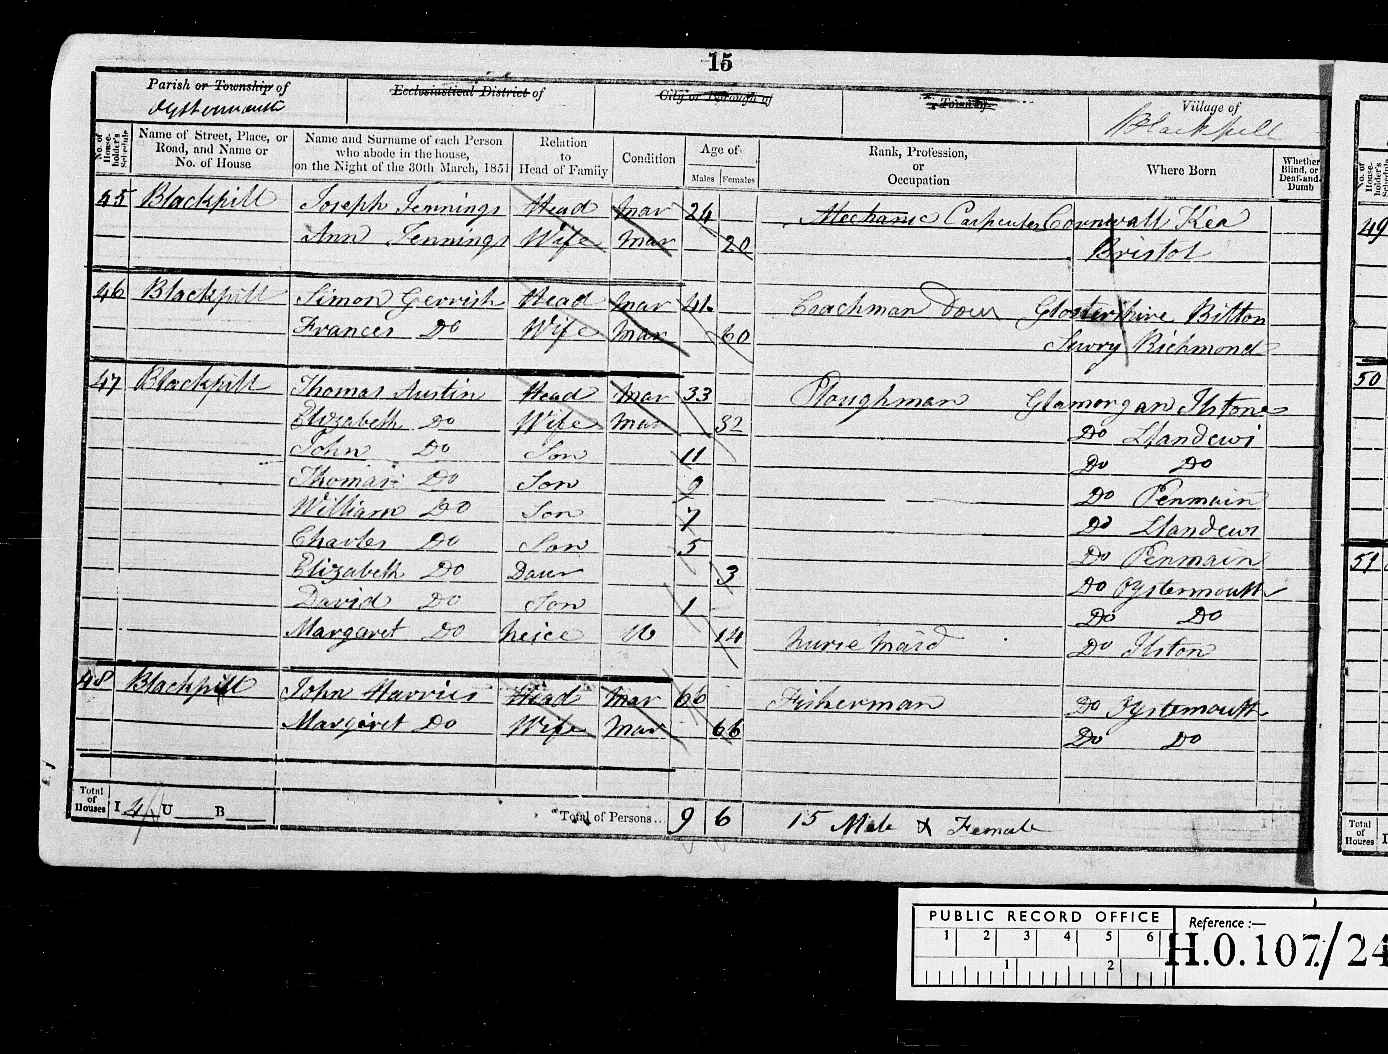 15
Parish or Township of
Oystermouth
Ecclesiastical District of
City or Borough of
Town of
Village of
Blackpill
No. of House-holder's Schedule
Name of Street, Place, or Road, and Name or No. of House
Name and Surname of each Person who abode in the house, on the Night of the 30th March, 1851
Relation to Head of Family
Condition
Age of
Males Females
Rank, Profession, or Occupation
Where Born
Whether Blind, or Deaf-and-Dumb
45 Blackpill Joseph Jennings Head Mar 24 Mechanic Carpenter Cornwall Kea
Ann Jennings Wife Mar 20 Bristol
46 Blackpill Simon Gerrish Head Mar 41 Coachman Dom Glostershire Bitton
Frances Do Wife Mar 60 Surry Richmond
47 Blackpill Thomas Austin Head Mar 33 Ploughman Glamorgan Ilstone
Elizabeth Do Wife Mar 32 Do Llandewi
John Do Son 11 Do Do
Thomas Do Son 9 Do Penmain
William Do Son 7 Do Llandewi
Charles Do Son 5 Do Penmain
Elizabeth Do Daur 3 Do Oystermouth
David Do Son 1 Do Do
Margaret Do Neice U 14 Nurse Maid Do Ilston
48 Blackpill John Harries Head Mar 66 Fisherman Do Oystermouth
Margaret Do Wife Mar 66 Do Do
Total of Houses I 4 U B Total of Persons.. 9 6 15 Male & Female
49
50
51
Total of Houses I
PUBLIC RECORD OFFICE
1 2 3 4 5 6
1 2
Reference :—
H.O.107/24